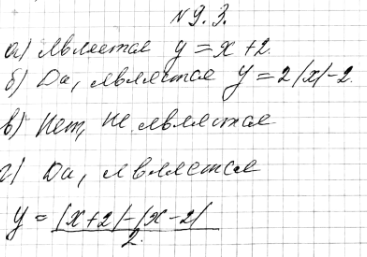 № 9.3.
а) является y = x + 2.
б) Да, является y = 2|x| - 2.
в) Нет, не является
г) Да, является
y = |x+2|-|x-2|
2.